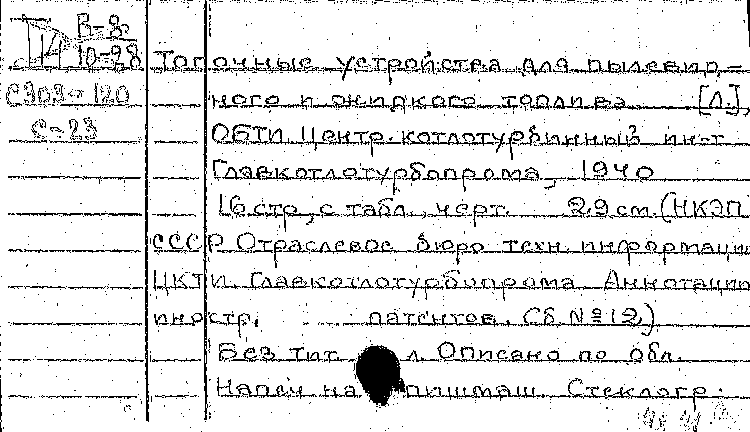 В-8
П4 10-28
С303-120
С-23
Топочные устройства для пылевид-
ного и жидкого топлива [Л.],
ОБТИ Центр. котлотурбинный ин-т
Главкотлотурбопрома, 1940
16 стр, с табл., черт. 29 см. (НКЭП
СССР Отраслевое бюро техн. информации
ЦКТИ Главкотлотурбопрома Аннотации
иностр. патентов. Сб. № 12)
Без тит. л. Описано по обл.
Напеч на пишмаш. Стеклогр.